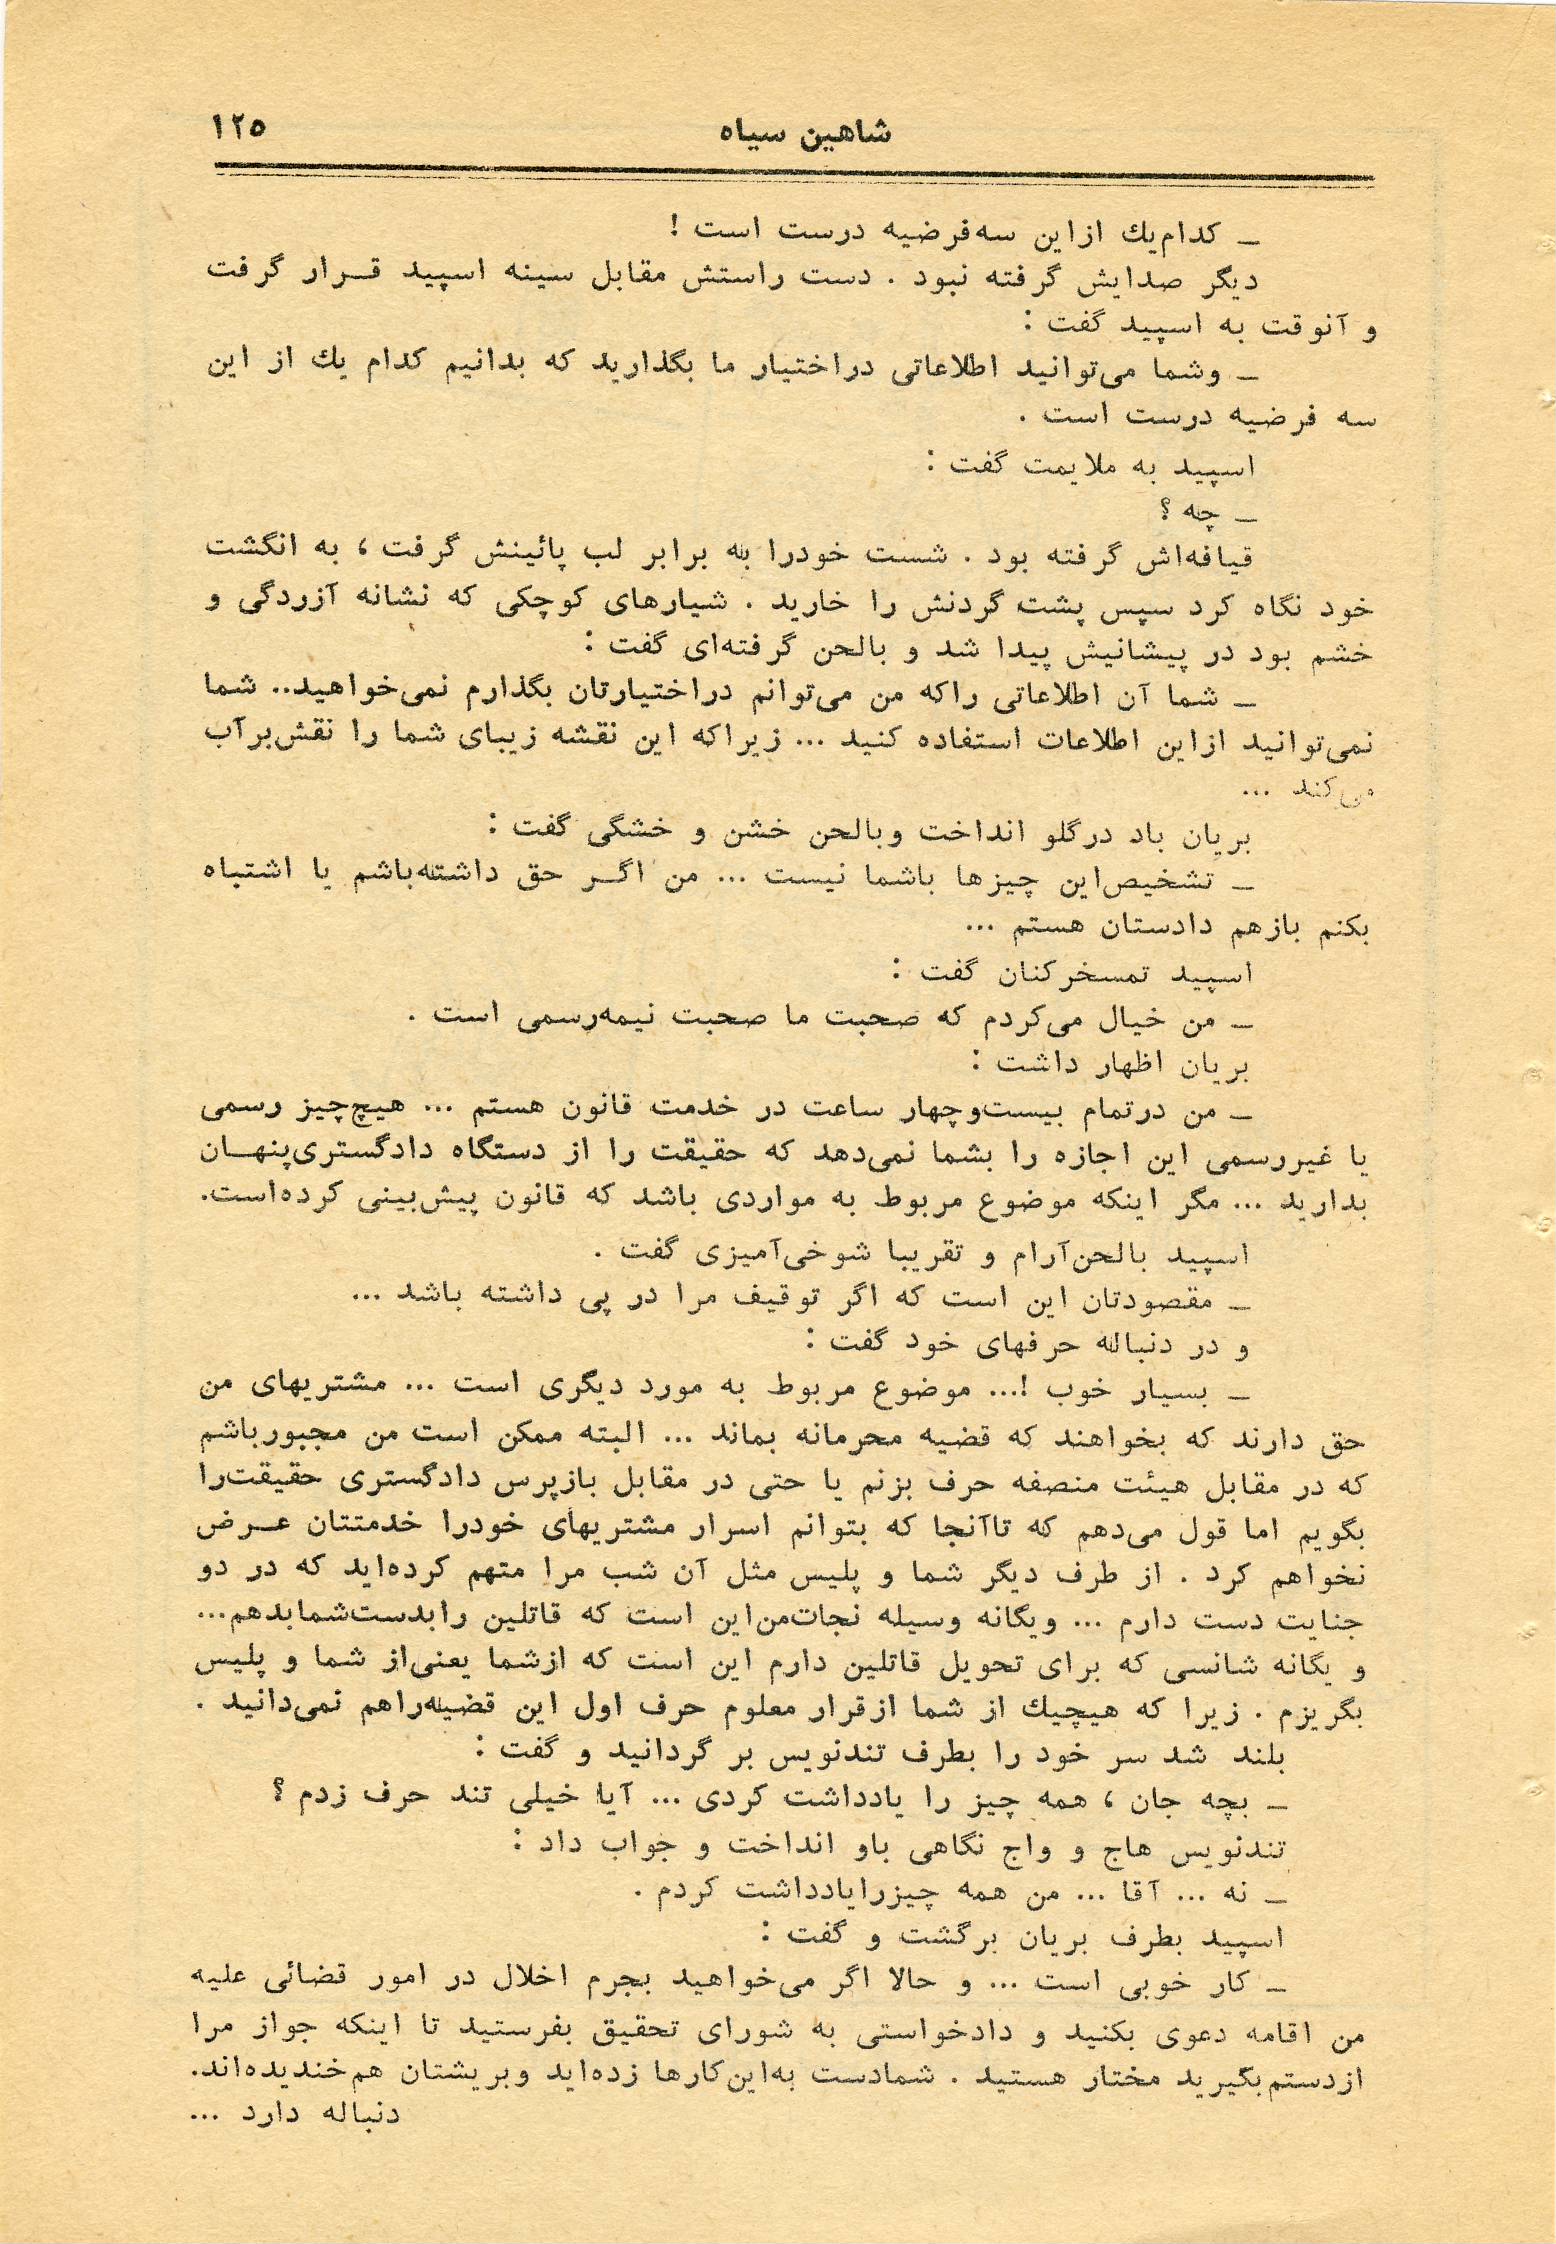 شاهین سیاه
۱۲۵
ـ کدام‌یك ازاین سه‌فرضیه درست است !
دیگر صدایش گرفته نبود . دست راستش مقابل سینه اسپید قـرار گرفت
و آنوقت به اسپید گفت :
ـ وشما می‌توانید اطلاعاتی دراختیار ما بگذارید که بدانیم کدام یك از این
سه فرضیه درست است .
اسپید به ملایمت گفت :
ـ چه ؟
قیافه‌اش گرفته بود . شست خودرا به برابر لب پائینش گرفت ، به انگشت
خود نگاه کرد سپس پشت گردنش را خارید . شیارهای کوچکی که نشانه آزردگی و
خشم بود در پیشانیش پیدا شد و بالحن گرفته‌ای گفت :
ـ شما آن اطلاعاتی راکه من می‌توانم دراختیارتان بگذارم نمی‌خواهید.. شما
نمی‌توانید ازاین اطلاعات استفاده کنید ... زیراکه این نقشه زیبای شما را نقش‌برآب
می‌کند ...
بریان باد درگلو انداخت وبالحن خشن و خشگی گفت :
ـ تشخیص‌این چیزها باشما نیست ... من اگـر حق داشته‌باشم یا اشتباه
بکنم بازهم دادستان هستم ...
اسپید تمسخرکنان گفت :
ـ من خیال می‌کردم که صحبت ما صحبت نیمه‌رسمی است .
بریان اظهار داشت :
ـ من درتمام بیست‌وچهار ساعت در خدمت قانون هستم ... هیچ‌چیز رسمی
یا غیررسمی این اجازه را بشما نمی‌دهد که حقیقت را از دستگاه دادگستری‌پنهـان
بدارید ... مگر اینکه موضوع مربوط به مواردی باشد که قانون پیش‌بینی کرده‌است.
اسپید بالحن‌آرام و تقریبا شوخی‌آمیزی گفت .
ـ مقصودتان این است که اگر توقیف مرا در پی داشته باشد ...
و در دنباله حرفهای خود گفت :
ـ بسیار خوب !... موضوع مربوط به مورد دیگری است ... مشتریهای من
حق دارند که بخواهند که قضیه محرمانه بماند ... البته ممکن است من مجبورباشم
که در مقابل هیئت منصفه حرف بزنم یا حتی در مقابل بازپرس دادگستری حقیقت‌را
بگویم اما قول می‌دهم که تاآنجا که بتوانم اسرار مشتریهای خودرا خدمتتان عـرض
نخواهم کرد . از طرف دیگر شما و پلیس مثل آن شب مرا متهم کرده‌اید که در دو
جنایت دست دارم ... ویگانه وسیله نجات‌من‌این است که قاتلین رابدست‌شمابدهم...
و یگانه شانسی که برای تحویل قاتلین دارم این است که ازشما یعنی‌از شما و پلیس
بگریزم . زیرا که هیچیك از شما ازقرار معلوم حرف اول این قضیه‌راهم نمی‌دانید .
بلند شد سر خود را بطرف تندنویس بر گردانید و گفت :
ـ بچه جان ، همه چیز را یادداشت کردی ... آیا خیلی تند حرف زدم ؟
تندنویس هاج و واج نگاهی باو انداخت و جواب داد :
ـ نه ... آقا ... من همه چیزرایادداشت کردم .
اسپید بطرف بریان برگشت و گفت :
ـ کار خوبی است ... و حالا اگر می‌خواهید بجرم اخلال در امور قضائی علیه
من اقامه دعوی بکنید و دادخواستی به شورای تحقیق بفرستید تا اینکه جواز مرا
ازدستم‌بگیرید مختار هستید . شمادست به‌این‌کارها زده‌اید وبریشتان هم‌خندیده‌اند.
دنباله دارد ...